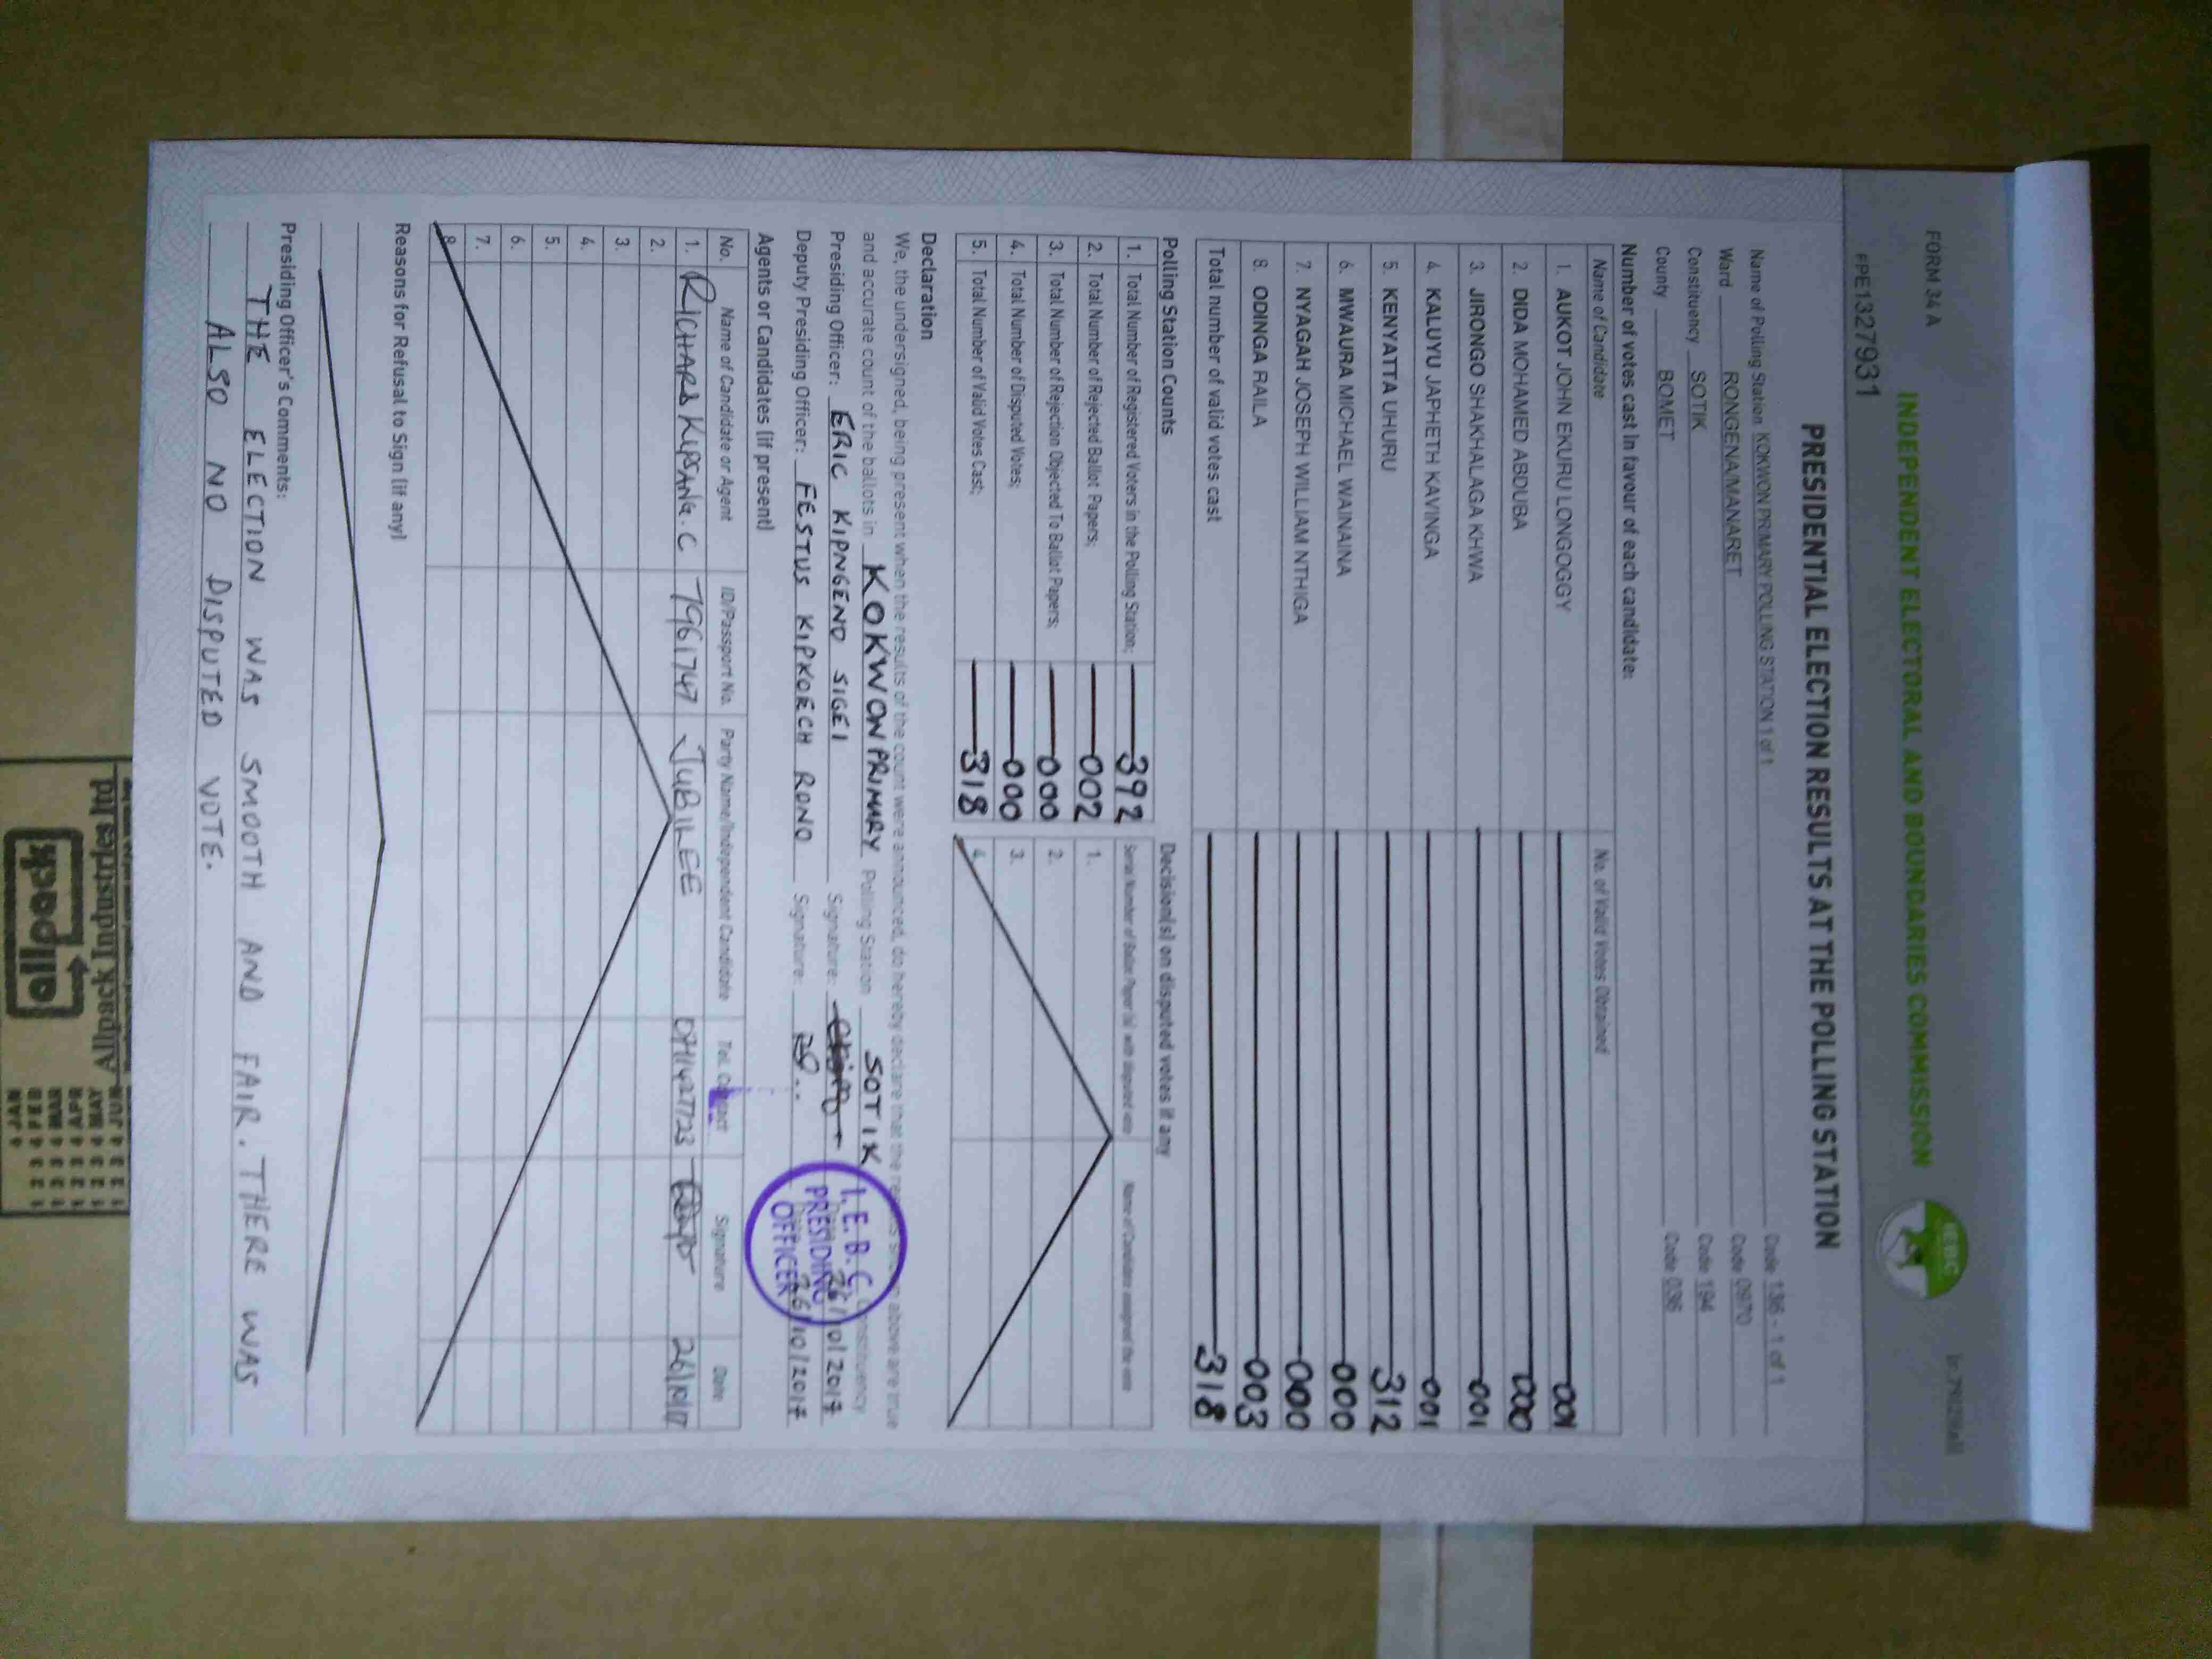 FORM 34 A
FPE1327931
INDEPENDENT ELECTORAL AND BOUNDARIES COMMISSION
IEBC
PRESIDENTIAL ELECTION RESULTS AT THE POLLING STATION
Name of Polling Station KOKWON PRIMARY POLLING STATION 1 of 1 Code 136 - 1 of 1
Ward RONGENA/MANARET Code 0970
Constituency SOTIK Code 194
County BOMET Code 036
Number of votes cast in favour of each candidate:
Name of Candidate No. of Valid Votes Obtained
1. AUKOT JOHN EKURU LONGOGGY 001
2. DIDA MOHAMED ABDUBA 000
3. JIRONGO SHAKHALAGA KHWA 001
4. KALUYU JAPHETH KAVINGA 001
5. KENYATTA UHURU 312
6. MWAURA MICHAEL WAINAINA 000
7. NYAGAH JOSEPH WILLIAM NTHIGA 000
8. ODINGA RAILA 003
Total number of valid votes cast 318
Polling Station Counts Decision(s) on disputed votes if any
1. Total Number of Registered Voters in the Polling Station; 392
2. Total Number of Rejected Ballot Papers; 002
3. Total Number of Rejection Objected To Ballot Papers; 000
4. Total Number of Disputed Votes; 000
5. Total Number of Valid Votes Cast; 318
Serial Number of Ballot Paper (s) with disputed vote Name of Candidate assigned the vote
1.
2.
3.
4.
Declaration
We, the undersigned, being present when the results of the count were announced, do hereby declare that the above are true
and accurate count of the ballots in KOKWON PRIMARY Polling Station SOTIK Constituency
Presiding Officer: ERIC KIPNGENO SIGEI Signature: 26/10/2017
Deputy Presiding Officer: FESTUS KIPKOECH RONO Signature: 26/10/2017
I.E.B.C.
PRESIDING
OFFICER
Agents or Candidates (if present)
No. Name of Candidate or Agent ID/Passport No. Party Name/Independent Candidate Tel. Contact Signature Date
1. RICHARD KIPSANG.C 7961747 JUBILEE 26/10/17
2.
3.
4.
5.
6.
7.
8.
Reasons for Refusal to Sign (if any)
Presiding Officer's Comments:
THE ELECTION WAS SMOOTH AND FAIR. THERE WAS
ALSO NO DISPUTED VOTE.
Allpack Industries Ltd
allpack
JAN
FEB
MAR
APR
MAY
JUN